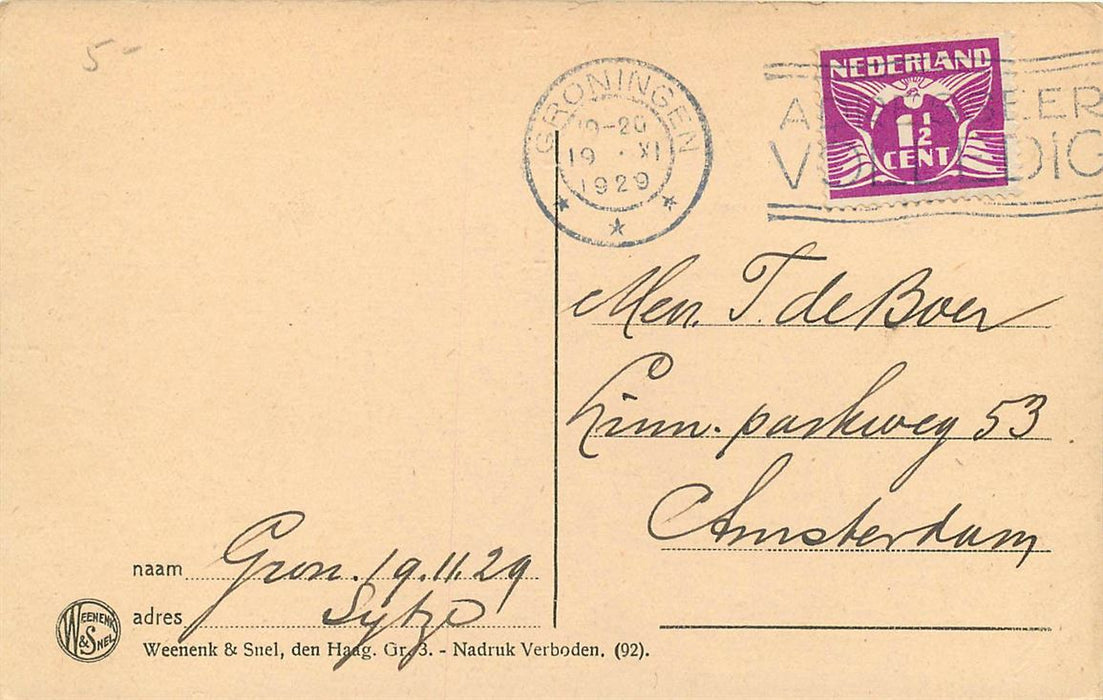 5-
GRONINGEN
19-20
19 · XI
1929
NEDERLAND
1½
CENT
Men. T. de Boer
Linn. parkweg 53
Amsterdam
naam Gron. 19.11.29
adres Sytze
WEENENK
& SNEL
Weenenk & Snel, den Haag. Gr. 3. - Nadruk Verboden. (92).